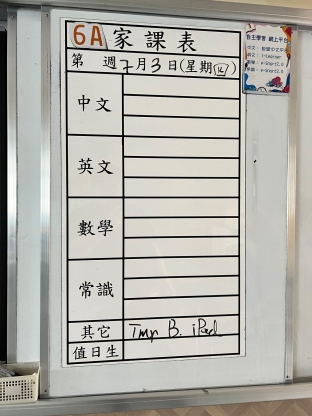 6A 家課表
第 週 7月3日(星期四)
中文
英文
數學
常識
其它 Tmr B. iPad
值日生
自主學習 網上平台